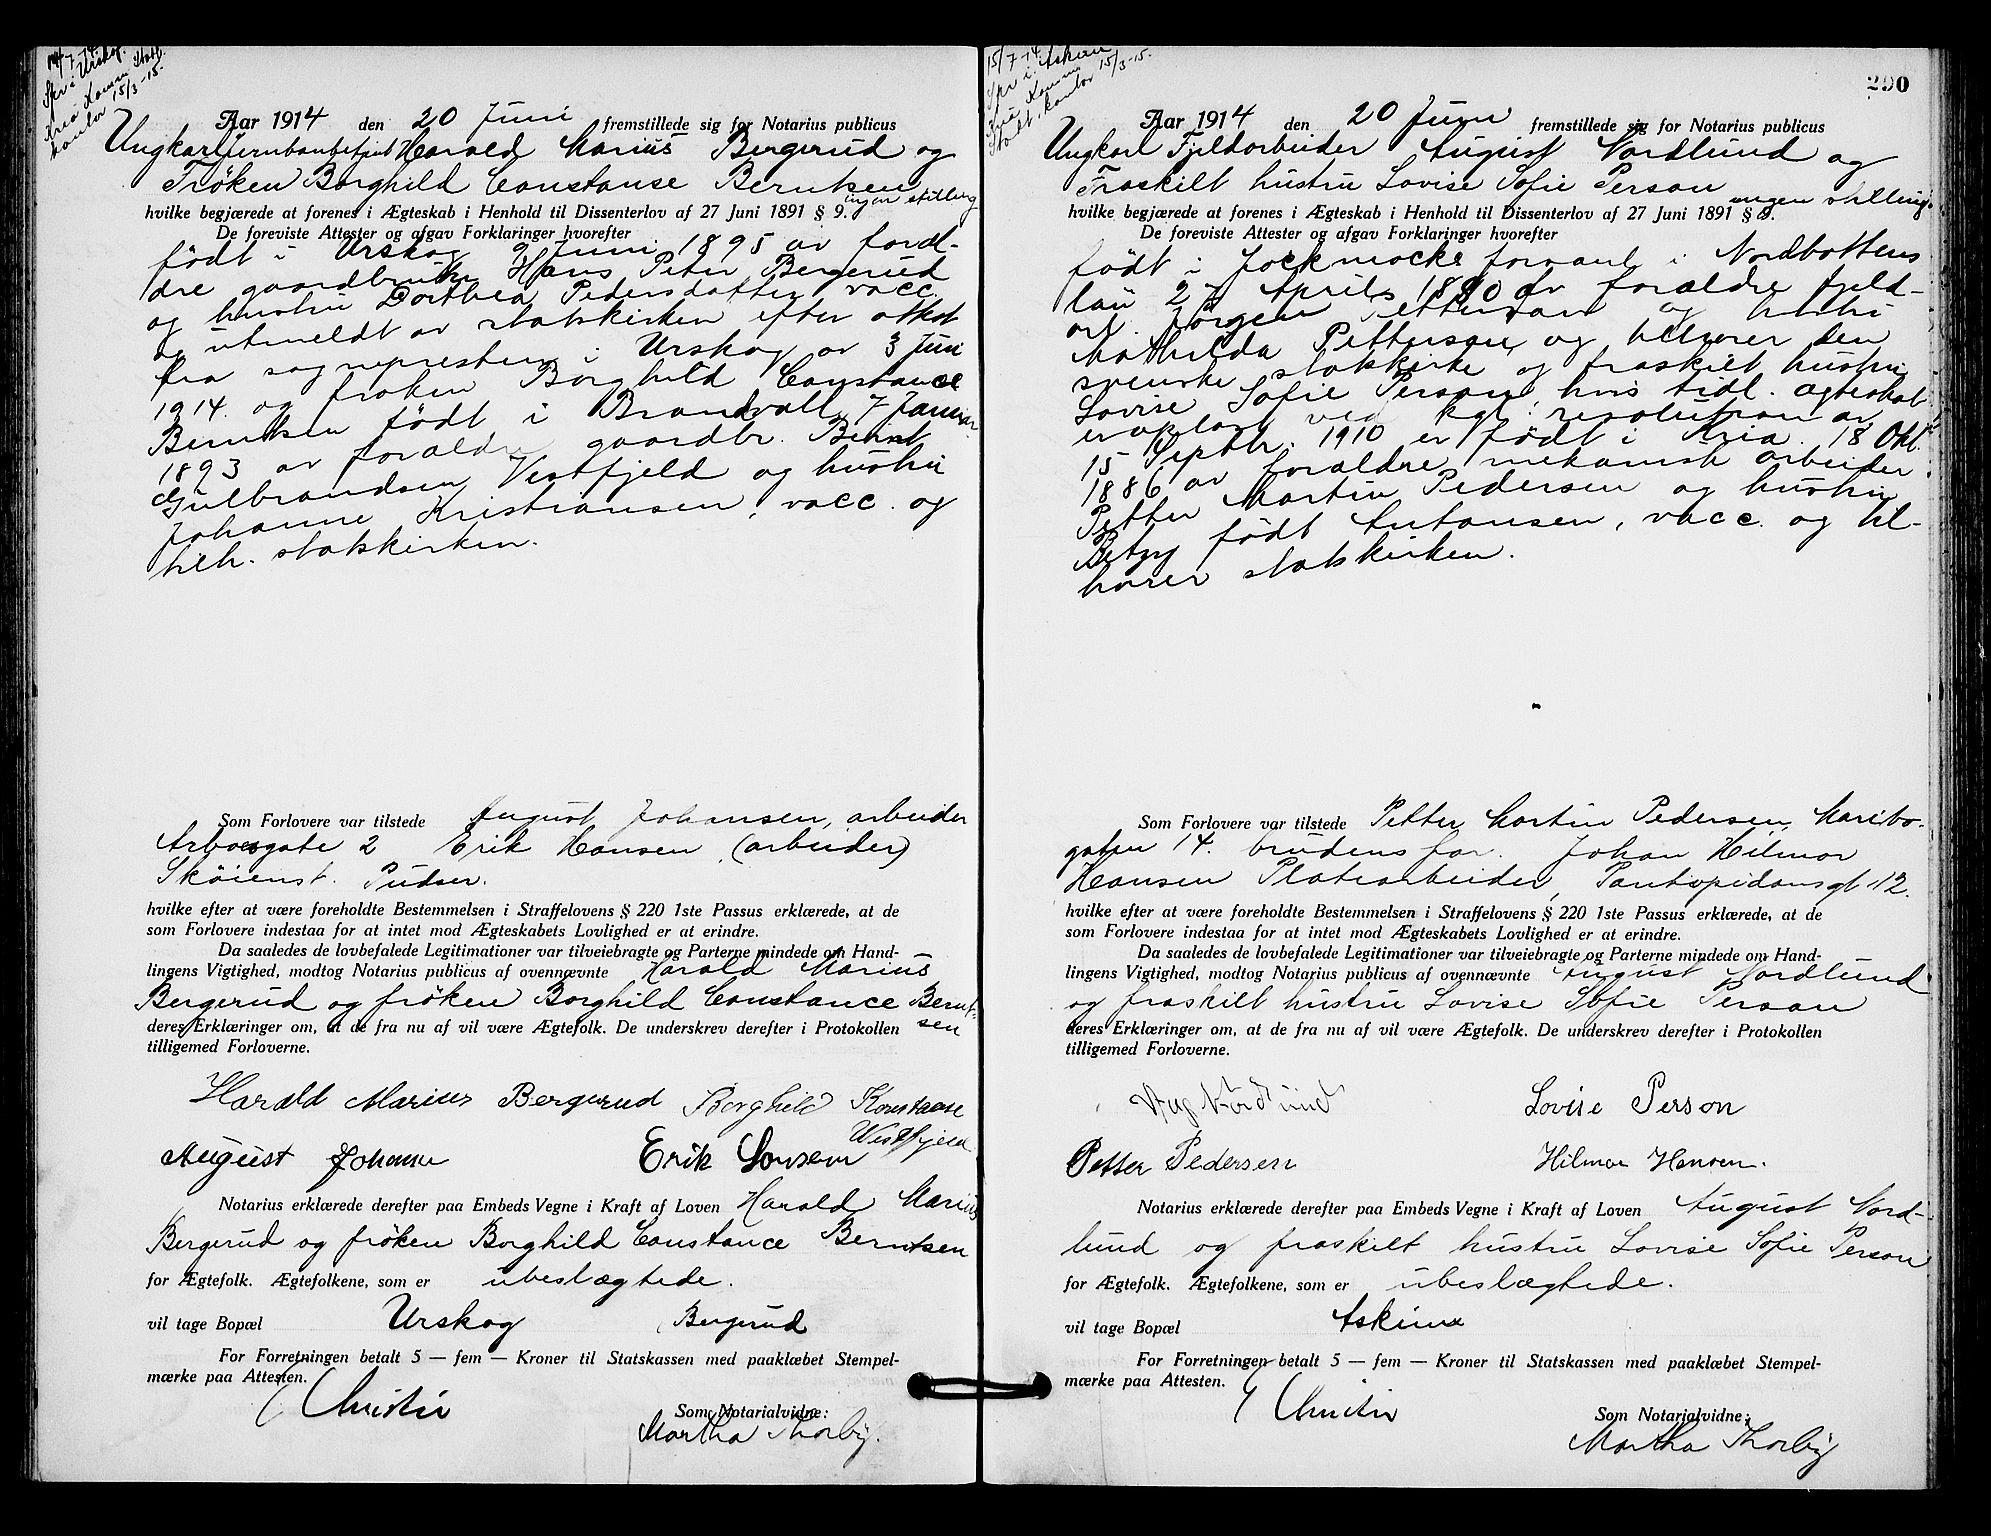 14/7-14.
Spr i Urskog.
Kria Komm Statb.
kontor 15/3-15.
Aar 1914 den 20 Juni fremstillede sig for Notarius publicus
Ungkarl jernbanbetjent Harald Marius Bergerud og
Frøken Borghild Constanse Berntsen
ingen stilling
hvilke begjærede at forenes i Ægteskab i Henhold til Dissenterlov af 27 Juni 1891 § 9.
De foreviste Attester og afgav Forklaringer hvorefter
født i Urskog 9 Juni 1895 av foræl-
dre gaardbruker Hans Peter Bergerud
og hustru Dorthea Pedersdatter vacc.
og utmeldt av statskirken efter attest
fra sognepresten i Urskog av 3 Juni
1914. og frøken Borghild Constance
Berntsen født i Brandvall 7 Januar
1893 av forældre gaardbr. Bernt
Gulbrandsen Vestfjeld og hustru
Johanne Kristiansen, vacc. og
tilh. statskirken.
Som Forlovere var tilstede August Johansen, arbeider
Arboesgate 2 Erik Hansen (arbeider)
Skøienst. Pudser.
hvilke efter at være foreholdte Bestemmelsen i Straffelovens § 220 1ste Passus erklærede, at de
som Forlovere indestaa for at intet mod Ægteskabets Lovlighed er at erindre.
Da saaledes de lovbefalede Legitimationer var tilveiebragte og Parterne mindede om Hand-
lingens Vigtighed, modtog Notarius publicus af ovennævnte Harald Marius
Bergerud og frøken Borghild Constance Bernt-
sen
deres Erklæringer om, at de fra nu af vil være Ægtefolk. De underskrev derefter i Protokollen
tilligemed Forloverne.
Harald Marius Bergerud Borghild Konstanse
Westfjeld
August Johansen Erik
Notarius erklærede derefter paa Embeds Vegne i Kraft af Loven Harald Marius
Bergerud og frøken Borghild Constance Berntsen
for Ægtefolk. Ægtefolkene, som er ubeslægtede.
vil tage Bopæl Urskog Bergerud
For Forretningen betalt 5 — fem — Kroner til Statskassen med paaklæbet Stempel-
mærke paa Attesten.
Som Notarialvidne:
Martha Thorby.
290
15/7-14.
Spr i. Askim
Kria Komm
Stat. kontor 15/3-15.
Aar 1914 den 20 Juni fremstillede sig for Notarius publicus
Ungkarl Fjeldarbeider August Nordlund og
Fraskilt hustru Lovise Sofie Person
ingen stilling.
hvilke begjærede at forenes i Ægteskab i Henhold til Dissenterlov af 27 Juni 1891 § 9.
De foreviste Attester og afgav Forklaringer hvorefter
født i Jockmocks forsaml i Nordbottens
län 27 April 1890 av forældre fjeld-
arb. Jörgen Petterson og hustru
Mathilda Petterson og tilhører den
svenske statskirke og fraskilt hustru
Lovise Sofie Person, hvis tidl. ægteskab
er opløst ved kgl. resolution av
15 Septbr. 1910 er født i Kria. 18 Okt.
1886 av forældre mekanisk arbeider
Petter Martin Pedersen og hustru
Betzy født Antonsen, vacc. og til-
hører statskirken.
Som Forlovere var tilstede Petter Martin Pedersen Maribo-
gaten 14. brudens far. Johan Hilmar
Hansen Platearbeider, Pontopidansgt 12.
hvilke efter at være foreholdte Bestemmelsen i Straffelovens § 220 1ste Passus erklærede, at de
som Forlovere indestaa for at intet mod Ægteskabets Lovlighed er at erindre.
Da saaledes de lovbefalede Legitimationer var tilveiebragte og Parterne mindede om Hand-
lingens Vigtighed, modtog Notarius publicus af ovennævnte August Nordlund
og fraskilt hustru Lovise Sofie Person
deres Erklæringer om, at de fra nu af vil være Ægtefolk. De underskrev derefter i Protokollen
tilligemed Forloverne.
Aug Nordlund Lovise Person
Petter Pedersen Hilmar Hansen.
Notarius erklærede derefter paa Embeds Vegne i Kraft af Loven August Nord-
lund og fraskilt hustru Lovise Sofie Person
for Ægtefolk. Ægtefolkene, som er ubeslægtede.
vil tage Bopæl Askim
For Forretningen betalt 5 — fem — Kroner til Statskassen med paaklæbet Stempel-
mærke paa Attesten.
Som Notarialvidne:
Martha Thorby